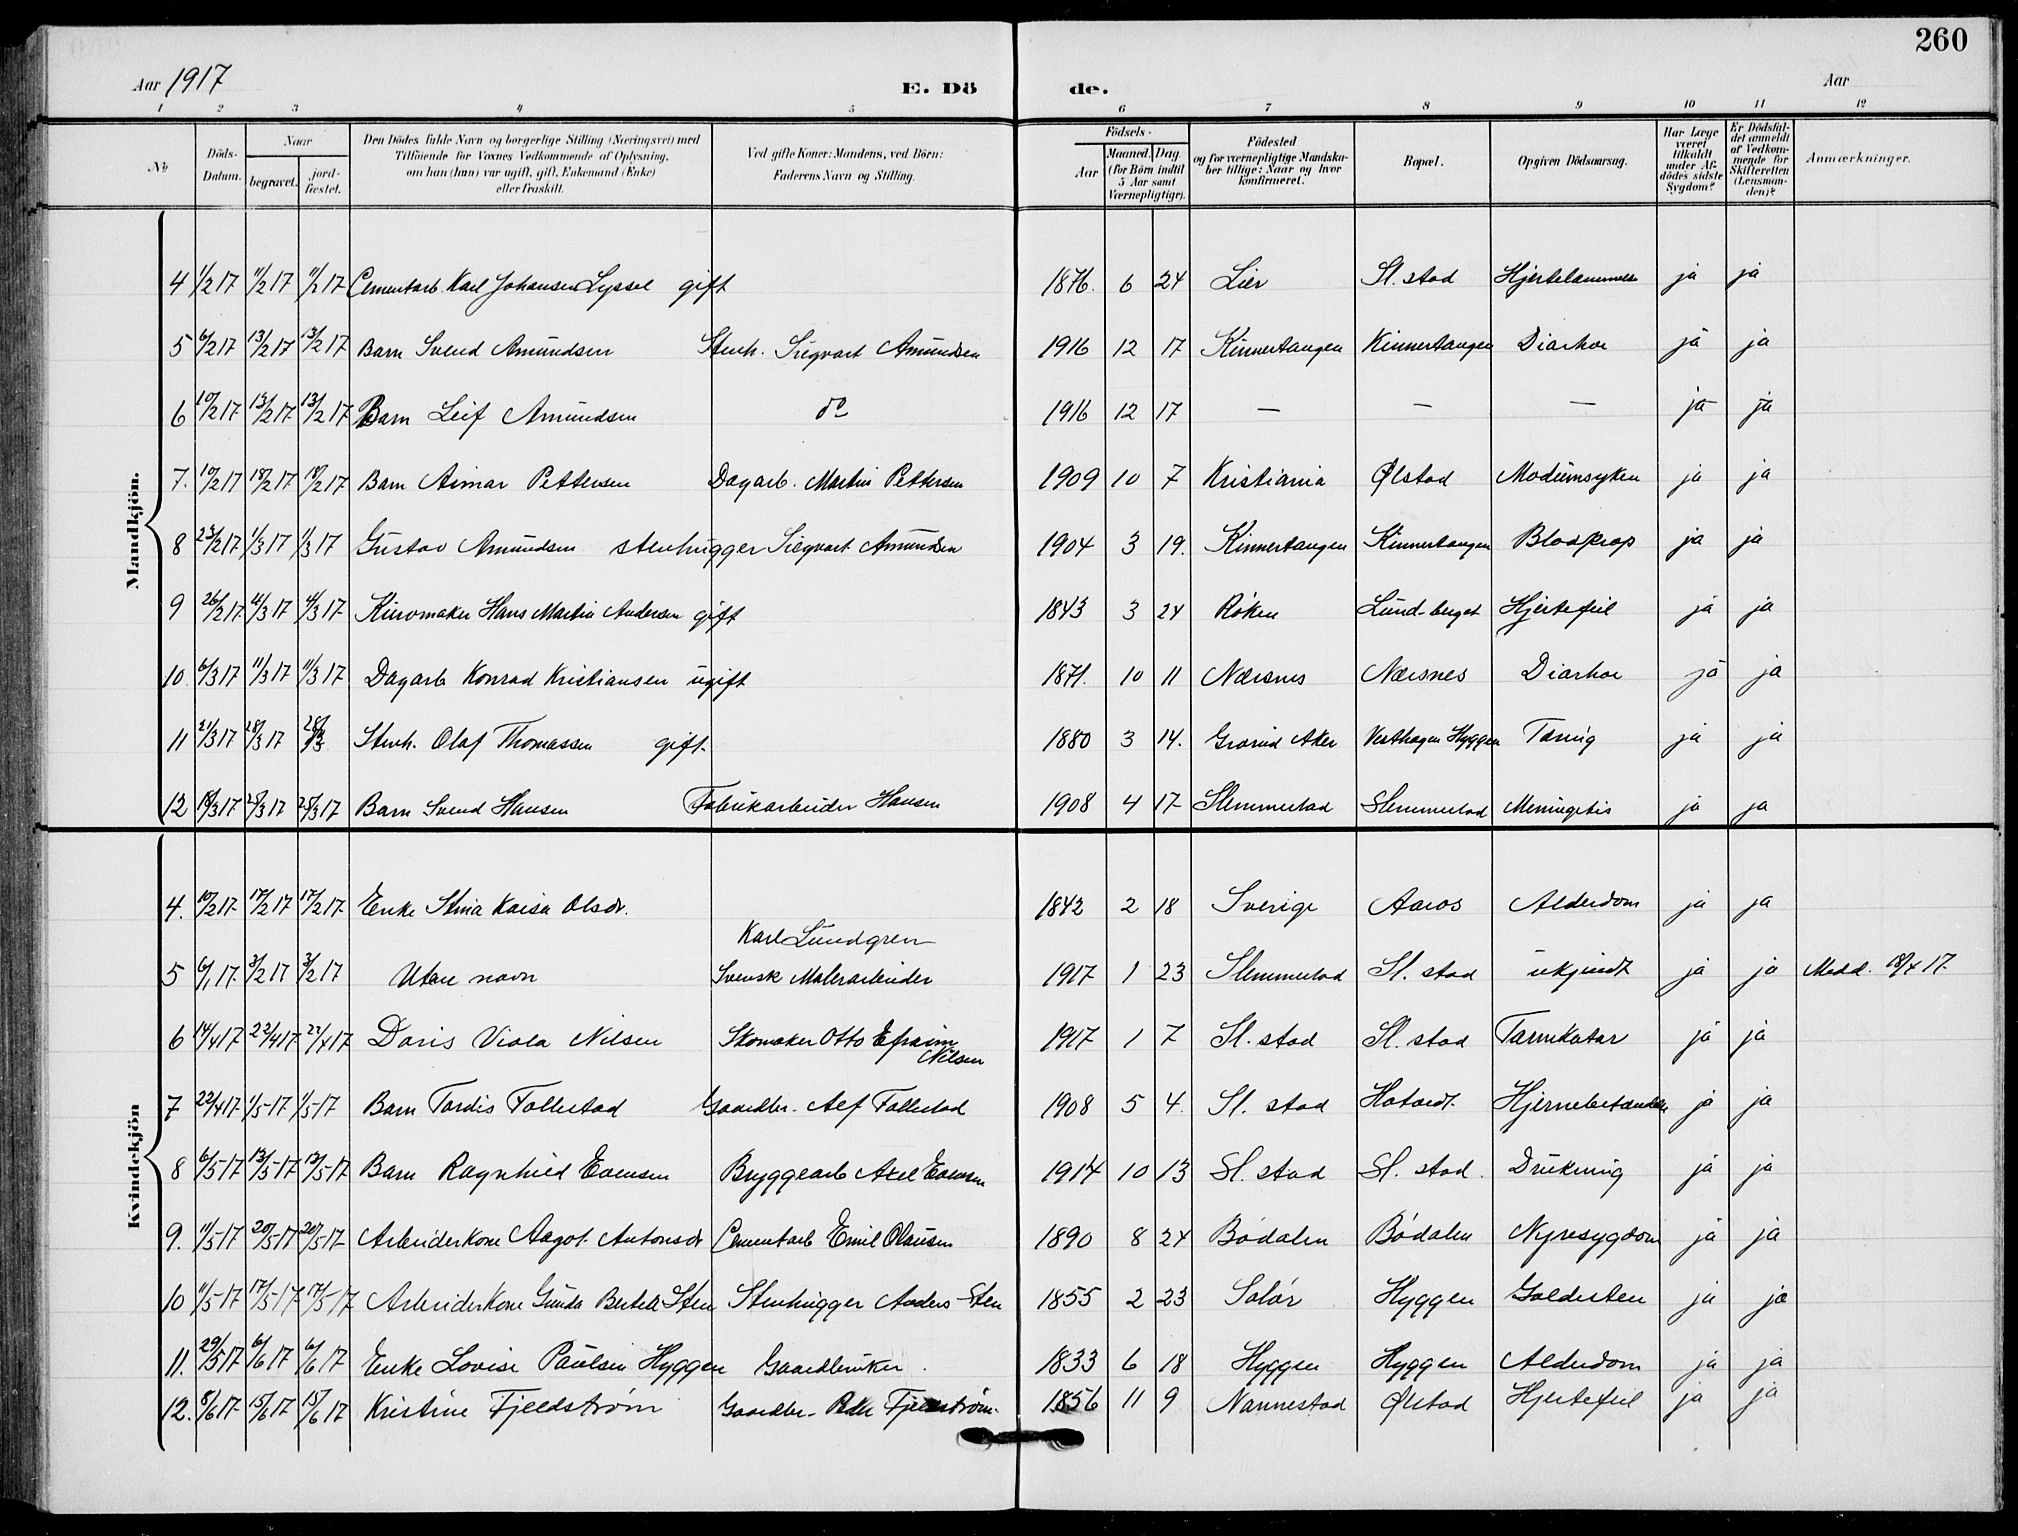 260
Aar 1917
E. Dö
de.
Aar
1 2 3 4 5 6 7 8 9 10 11 12
No
Döds-Datum.
Naar
begravet.
jord-fæstet.
Den Dödes fulde Navn og borgerlige Stilling (Næringsvei) med
Tilföiende for Voxnes Vedkommende af Oplysning,
om han (hun) var ugift, gift, Enkemand (Enke)
eller fraskilt.
Ved gifte Koner: Mandens, ved Börn:
Faderens Navn og Stilling.
Födsels-
Aar
Maaned. Dag.
(for Börn indtil
5 Aar samt
Værnepligtige).
Födested
og for værnepligtige Mandska-
ber tillige: Naar og hvor
konfirmeret.
Bopæl.
Opgiven Dödsaarsag.
Har Læge
været
tilkaldt
under Af-
dödes sidste
Sygdom?
Er Dödsfal-
det anmeldt
af Vedkom-
mende for
Skifteretten
(Lensman-
den)?
Anmærkninger.
Mandkjön.
4 1/2 17 11/2 17 11/2 17 Cementarb. Karl Johansen gift 1876. 6 24 Lier Sl. stad ja ja
5 6/2 17 13/2 17 13/2 17 Barn Svend Amundsen Stenh. Sigvart Amundsen 1916 12 17 Kinnertangen Kinnertangen Diarhoe ja ja
6 10/2 17 13/2 17 13/2 17 Barn Leif Amundsen do 1916 12 17 — — — ja ja
7. 10/2 17 18/2 17 18/2 17 Barn Aimar Pettersen Dagarb. Martin Pettersen 1909 10 7 Kristiania Ølstad ja ja
8 23/2 17 1/3 17 1/3 17 Gustav Amundsen stenhugger Siegvart Amundsen 1904 3 19. Kinnertangen Kinnertangen ja ja
9 26/2 17 4/3 17 4/3 17 Kurvmaker Hans Martin Andersen gift 1843 3 24 Røken Lund-berget Hjertefeil ja ja
10 6/3 17 11/3 17 11/3 17 Dagarb Konrad Kristiansen ugift 1871. 10 11 Nærsnes Nærsnes Diarhoe ja ja
11 21/3 17 28/3 17 28/3 Stenh. Olaf Thomassen gift. 1880 3 14. Grorud Aker Vesthagen Hyggen Tæring ja ja
12 18/3 17 25/3 17 25/3 17 Barn Svend Hansen Fabrikarbeider Hansen 1908 4 17 Slemmestad Slemmestad Meningitis ja ja
Kvindekjön
4. 10/2 17 17/2 17 17/2 17 Enke Stina Kaisa Olsdr. 1842 2 18 Sverige Aaros Alderdom ja ja
Karl Lundgren
5 6/1 17. 3/2 17 3/2 17 Uten navn Svensk Malerarbeider 1917 1 23 Slemmestad Sl. stad ukjendt ja ja Medd. 18/4 17
6 14/4 17 22/4 17 22/4 17 Doris Viola Nilsen Skomaker Otto Efraim Nilsen 1917 1 7 Sl. stad Sl. stad Tarmkatar ja ja
7 22/4 17 1/5 17 1/5 17 Barn Tordis Follestad Gaardbr. Alf Follestad 1908 5 4. Sl. stad Hjernebetændelse ja ja
8 6/5 17 13/5 17 13/5 17 Barn Ragnhild Evensen Bryggearb Axel Evensen 1914 10 13 Sl. stad Sl. stad. Drukning ja ja
9. 11/5 17 20/5 17 20/5 17 Arbeiderkone Aagot Antonsdr Cementarb Emil Olausen 1890 8 24 Bødalen Bødalen Nyresygdom ja ja
10 11/5 17 17/5 17 17/5 17 Arbeiderkone Gunda Sten Stenhugger Anders Sten 1855 2 23 Solør Hyggen Galdesten ja ja
11. 29/5 17 6/6 17 6/6 17 Enke Lovise Paulsen Hyggen Gaardbruker. 1833 6 18 Hyggen Hyggen Alderdom ja ja
12. 8/6 17 15/6 17 15/6 17 Kristine Fjeldstrøm Gaardbr. Peder Fjeldstrøm. 1856 11 9 Nannestad Ølstad Hjertefeil ja ja